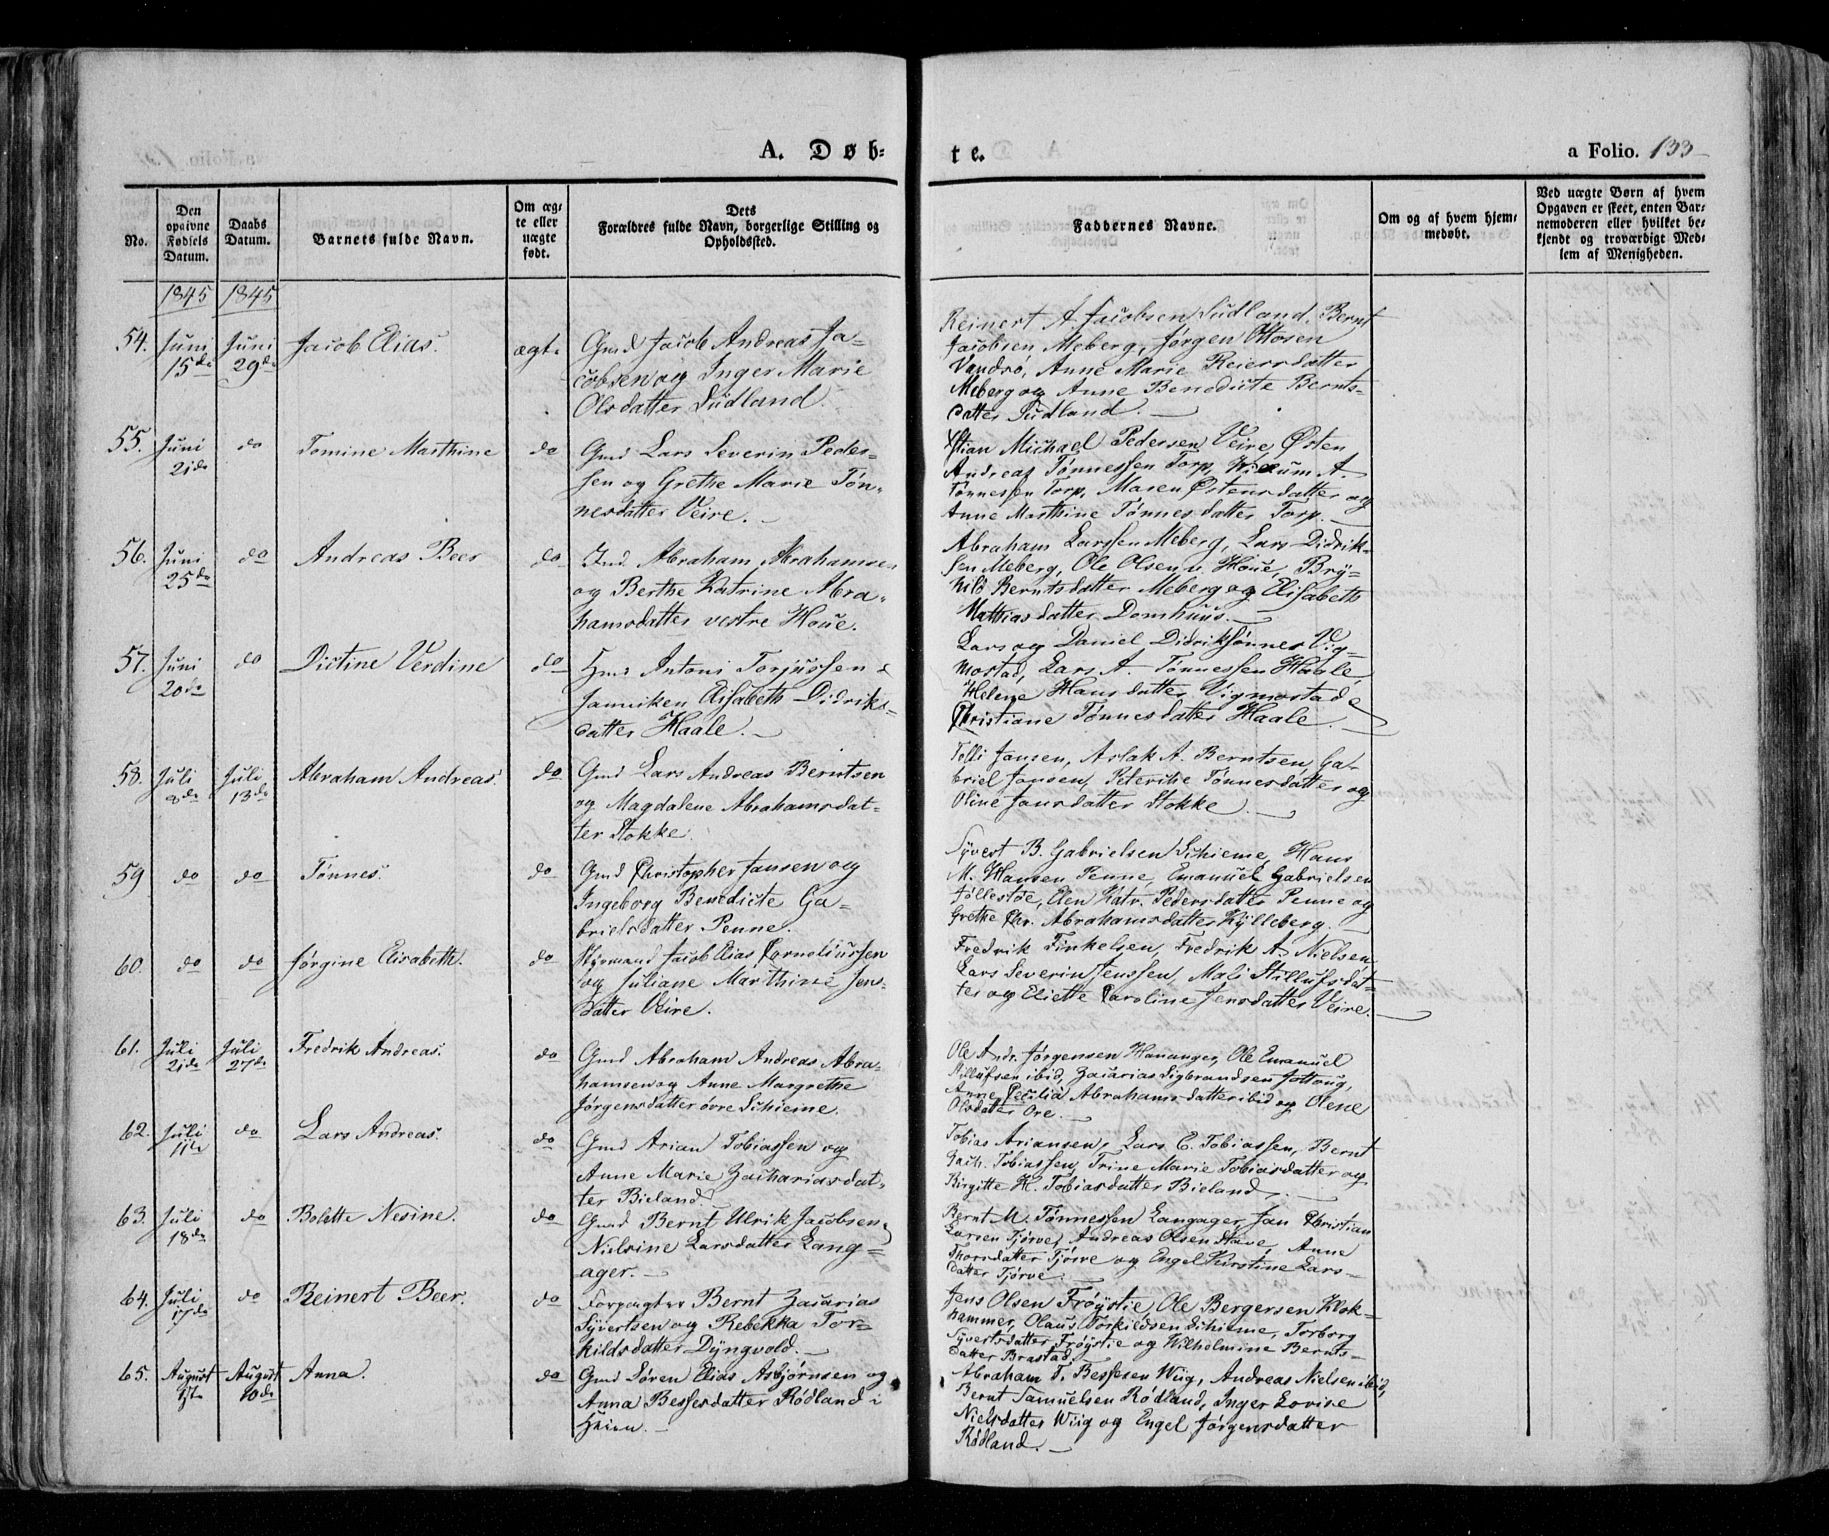 A. Døb=
te.
a Folio. 133
No.
Den
opgivne
Fødsels
Datum.
Daabs
Datum.
Barnets fulde Navn.
Om æg=
te eller
uægte
født.
Dets
Forældres fulde Navn, borgerlige Stilling og
Opholdssted.
Faddernes Navne.
Om og af hvem hjem=
medøbt.
Ved uægte Børn af hvem
Opgaven er skeet, enten Bar=
nemoderen eller hvilket be=
kjendt og troværdigt Med=
lem af Menigheden.
1845 1845
54. Juni 15de Juni 29de Jacob Elias. ægt.
Gmd Jacob Andreas Ja-
cobsen og Inger Marie
Olsdatter Sudland.
Reinert A. Jacobsen Sudland, Bernt
Jacobsen Meberg, Jørgen Ottosen
Vandrø, Anne Marie Reiersdatter
Meberg og Anne Benedicte Bernts-
datter Sudland.
55. Juni 21de do Tomine Marthine do
Gmd Lars Severin Peder-
sen og Grethe Marie Tøn-
nesdatter Veire.
Stian Michael Pedersen Veire, Østen
Andreas Tønnessen Torp, A.
Tønnessen Torp, Maren Østensdatter og
Anne Marthine Tønnesdatter Torp.
56. Juni 25de do Andreas Beer do
Ind. Abraham Abrahamsen
og Berthe Katrine Abra-
hamsdatter vestre Houe.
Abraham Larssen Meberg, Lars Didrik-
sen Meberg, Ole Olsen v. Houe, Bry-
nild Berntsdatter Meberg og Elisabeth
Mathiasdatter Domhuus.
57. Juni 20de do Dictine Verdine do
Gmd Antoni Torjussen &
Janniken Elisabeth Didriks-
datter Haale.
Lars og Daniel Didriksønner Vig-
mostad, Lars A. Tønnessen Haale,
Helene Hansdatter Vigmostad &
Christiane Tønnesdatter Haale.
58. Juli 8de Juli 13de Abraham Andreas. do
Gmd Lars Andreas Berntsen
og Magdalene Abrahamsdat-
ter Stokke.
Tolli Jansen, Aslak A. Berntsen, Ga-
briel Jansen, Petervike Tønnesdatter og
Oline Jansdatter Stokke.
59 do do Tønnes. do
Gmd Christopher Jansen og
Ingeborg Benedicte Ga-
brielsdatter Penne.
Syvert B. Gabrielsen Schieme, Hans
M. Hansen Penne, Emanuel Gabrielsen
Jøllestøe, Elen Katr. Pedersdatter Penne og
Grethe Chr. Abrahamsdatter Kylleberg.
60. do do Jørgine Elisabeth. do
Styrmand Jacob Elias Corneliussen
og Juliane Marthine Jens-
datter Veire.
Fredrik Finkelsen, Fredrik A. Nielsen,
Lars Severin Jenssen, Mali Stillufsdat-
ter og Eliette Caroline Jensdatter Veire.
61. Juli 21de Juli 27de Fredrik Andreas. do
Gmd Abraham Andreas Abra-
hamsen og Anne Margrethe
Jørgensdatter øvre Schieme.
Ole Andr. Jørgensen Hananger, Ole Emanuel
Stillufsen ibid, Zacarias Sigbrandsen Jottoug,
Anne Cecilia Abrahamsdatter ibid og Olene
Olsdatter Ore.
62. Juli 11te do Lars Andreas. do
Gmd Arian Tobiassen og
Anne Marie Zachariasdat-
ter Bieland.
Tobias Ariansen, Lars C. Tobiassen, Bernt
Zach. Tobiassen, Trine Marie Tobiasdatter og
Birgitte H. Tobiasdatter Bieland.
63. Juli 18de do Bolette Nesine. do
Gmd Bernt Ulrik Jacobsen &
Nielsine Larsdatter Lang-
ager.
Bernt M. Tønnessen Langager, Jan Christian
Larsen Tjørve, Andreas Olsen Stave, Anne
Thorsdatter Tjørve og Engel Kirstine Lars-
datter Tjørve.
64. Juli 17de do Reinert Beer. do
Forpagter Bernt Zacarias
Syvertsen og Rebekka Tor-
kildsdatter Dyngvold.
Jens Olsen Frøystie, Ole Bergersen Klok-
hammer, Olaus Torkildsen Schieme, Torborg
Syvertsdatter Frøystie og Wilhelmine Bernts-
datter Brastad.
65. August 1ste August 10de Anna. do
Gmd Søren Elias Asbjørnsen og
Anna Bessesdatter Rødland i
Heien.
Abraham T. Bessesen Wiig, Andreas Nielsen ibid,
Bernt Samuelsen Rødland, Inger Lovise
Nielsdatter Wiig og Engel Jørgensdatter
Rødland.